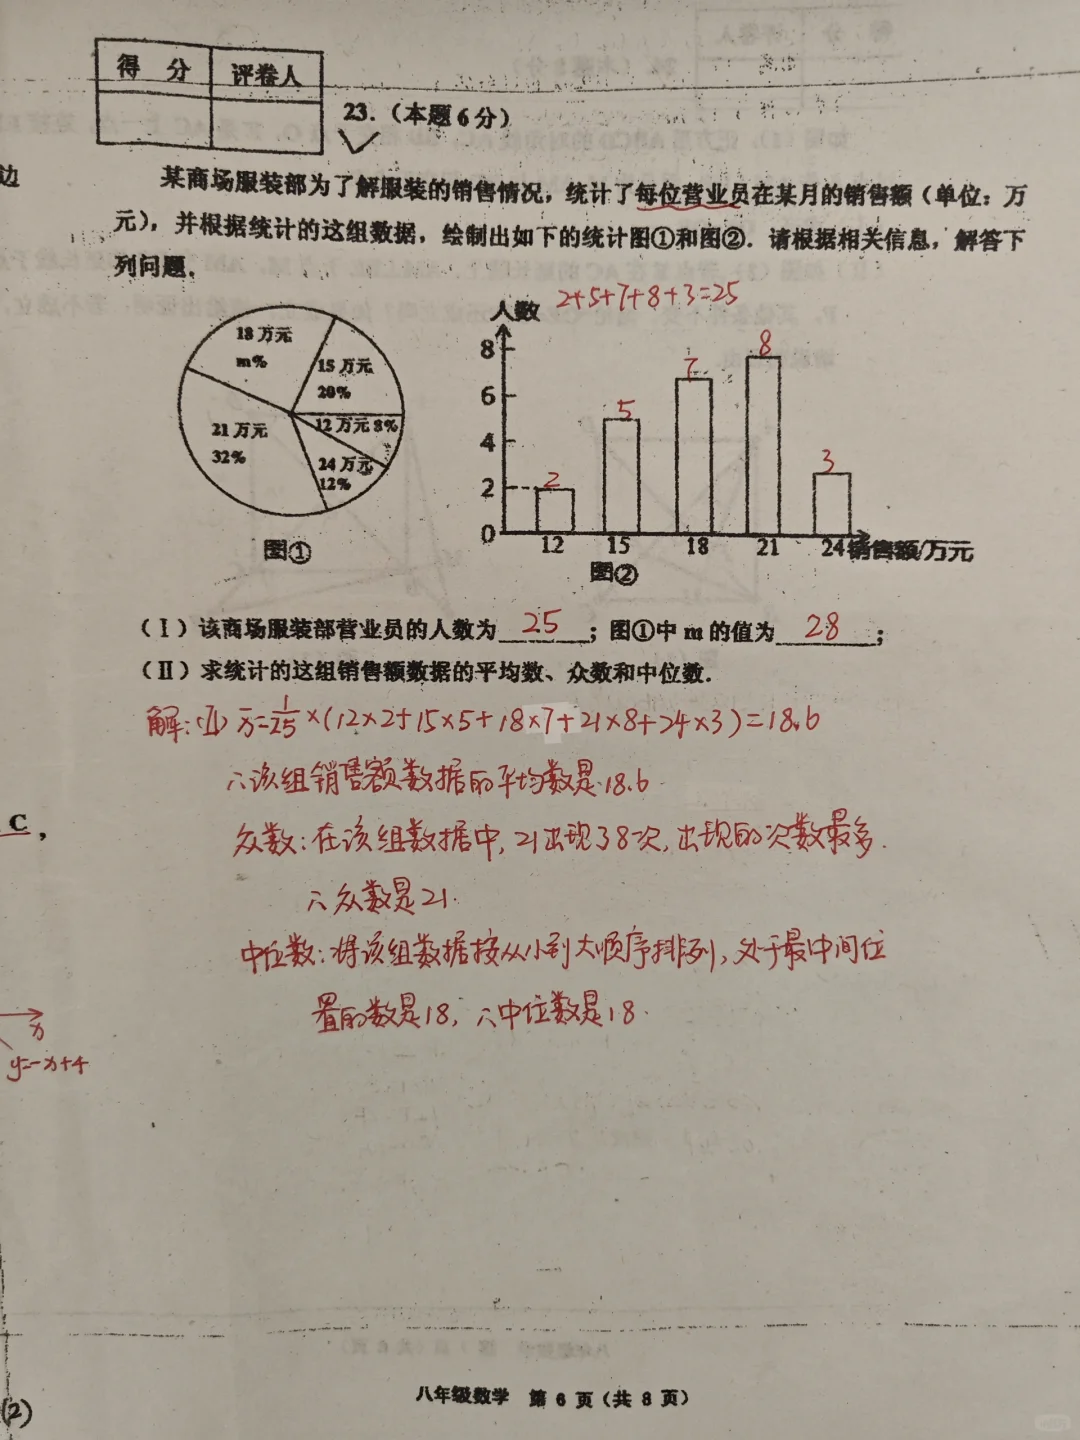 得 分 评卷人
23.（本题6分）
边
某商场服装部为了解服装的销售情况，统计了每位营业员在某月的销售额（单位：万
元），并根据统计的这组数据，绘制出如下的统计图①和图②．请根据相关信息，解答下
列问题．
2+5+7+8+3=25
18万元
m%
15万元
20%
12万元 8%
21万元
32%
24万元
12%
图①
人数
8
6
4
2
0
2
5
7
8
3
12 15 18 21 24 销售额/万元
图②
（Ⅰ）该商场服装部营业员的人数为 25 ；图①中m的值为 28 ；
（Ⅱ）求统计的这组销售额数据的平均数、众数和中位数．
解：(Ⅱ) x̄=1/25×(12×2+15×5+18×7+21×8+24×3)=18.6
∴该组销售额数据的平均数是18.6
C，
众数：在该组数据中，21出现了8次，出现的次数最多．
∴众数是21．
中位数：将该组数据按从小到大顺序排列，处于最中间位
置的数是18，∴中位数是18．
x
y=-x+4
八年级数学 第 6 页（共 8 页）
(2)